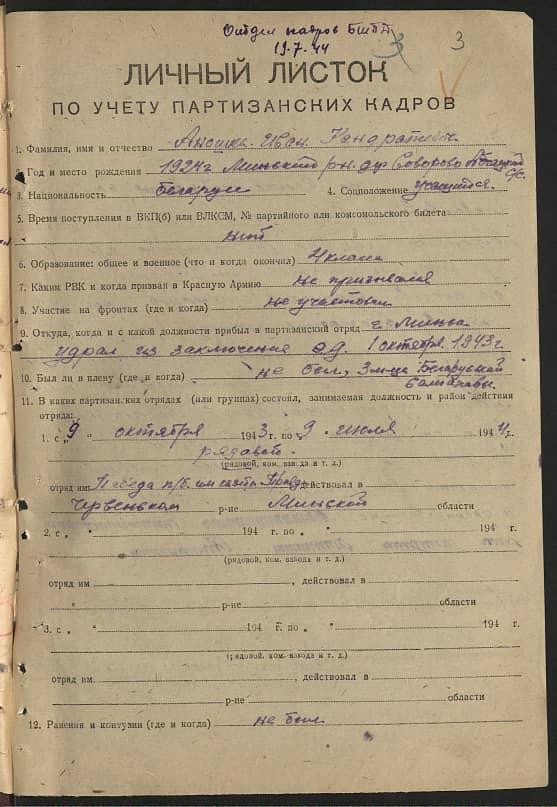 Отдел кадров БШПД
19.7.44
3
ЛИЧНЫЙ ЛИСТОК
ПО УЧЕТУ ПАРТИЗАНСКИХ КАДРОВ
1. Фамилия, имя и отчество Аношка Иван Кондратьевич
2. Год и место рождения 1924г Минский р-н. др.
с/с.
3. Национальность беларус 4. Соцположение учащийся.
5. Время поступления в ВКП(б) или ВЛКСМ, № партийного или комсомольского билета
нет
6. Образование: общее и военное (что и когда окончил) 4 класа
7. Каким РВК и когда призван в Красную Армию не призывался
8. Участие на фронтах (где и когда) не участвовал
9. Откуда, когда и с какой должности прибыл в партизанский отряд г. Минска
удрал из заключения 1 октября 1943г.
10. Был ли в плену (где и когда) не был,
11. В каких партизанских отрядах (или группах) состоял, занимаемая должность и район действия
отряда:
1. с „ 9 " октября 1943 г. по „ 9 " июля 1944 г.
рядовой.
(рядовой, ком. взвода и т. д.)
отряд им. Победа п/б. им газеты Правда действовал в
Червеньском р-не Минской области
2. с „ " 194 г. по „ " 194 г.
(рядовой, ком. взвода и т. д.)
отряд им. , действовал в
р-не области
3. с „ " 194 г. по „ " 194 г.
(рядовой, ком. взвода и т. д.)
отряд им. , действовал в
р-не области
12. Ранения и контузии (где и когда) не был